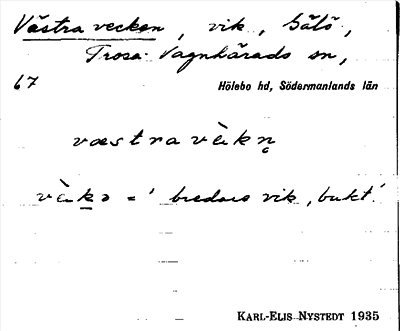 Västra vecken, vik, Sålö,
Trosa-Vagnhärads sn,
67 Hölebo hd, Södermanlands län
væstra vèkn̥
vèkə = 'bredare vik, bukt'.
KARL-ELIS NYSTEDT 1935